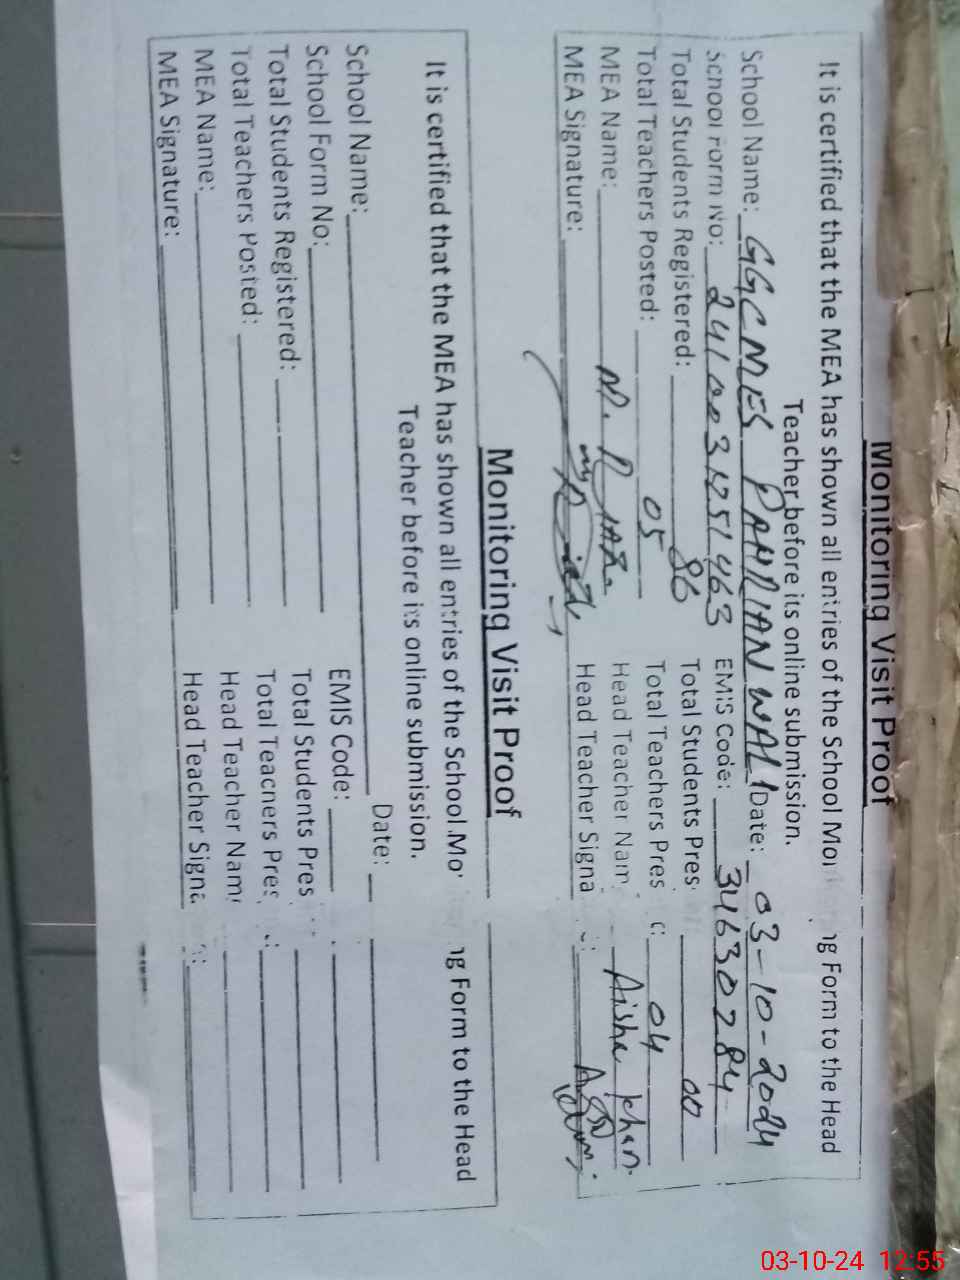 Monitoring Visit Proof
It is certified that the MEA has shown all entries of the School Moi ng Form to the Head
Teacher before its online submission.
School Name: GGCMES Date: 03-10-2024
School Form No: EMIS Code: 34630284
Total Students Registered: 86 Total Students Pres 00
Total Teachers Posted: 05 Total Teachers Pres 04
MEA Name: Head Teacher Nam Aisha Khan
MEA Signature: Head Teacher Signa
Monitoring Visit Proof
It is certified that the MEA has shown all entries of the School Mo ng Form to the Head
Teacher before its online submission.
School Name: Date:
School Form No: EMIS Code:
Total Students Registered: Total Students Pres
Total Teachers Posted: Total Teachers Pres
MEA Name: Head Teacher Nam
MEA Signature: Head Teacher Signa
03-10-24 12:55